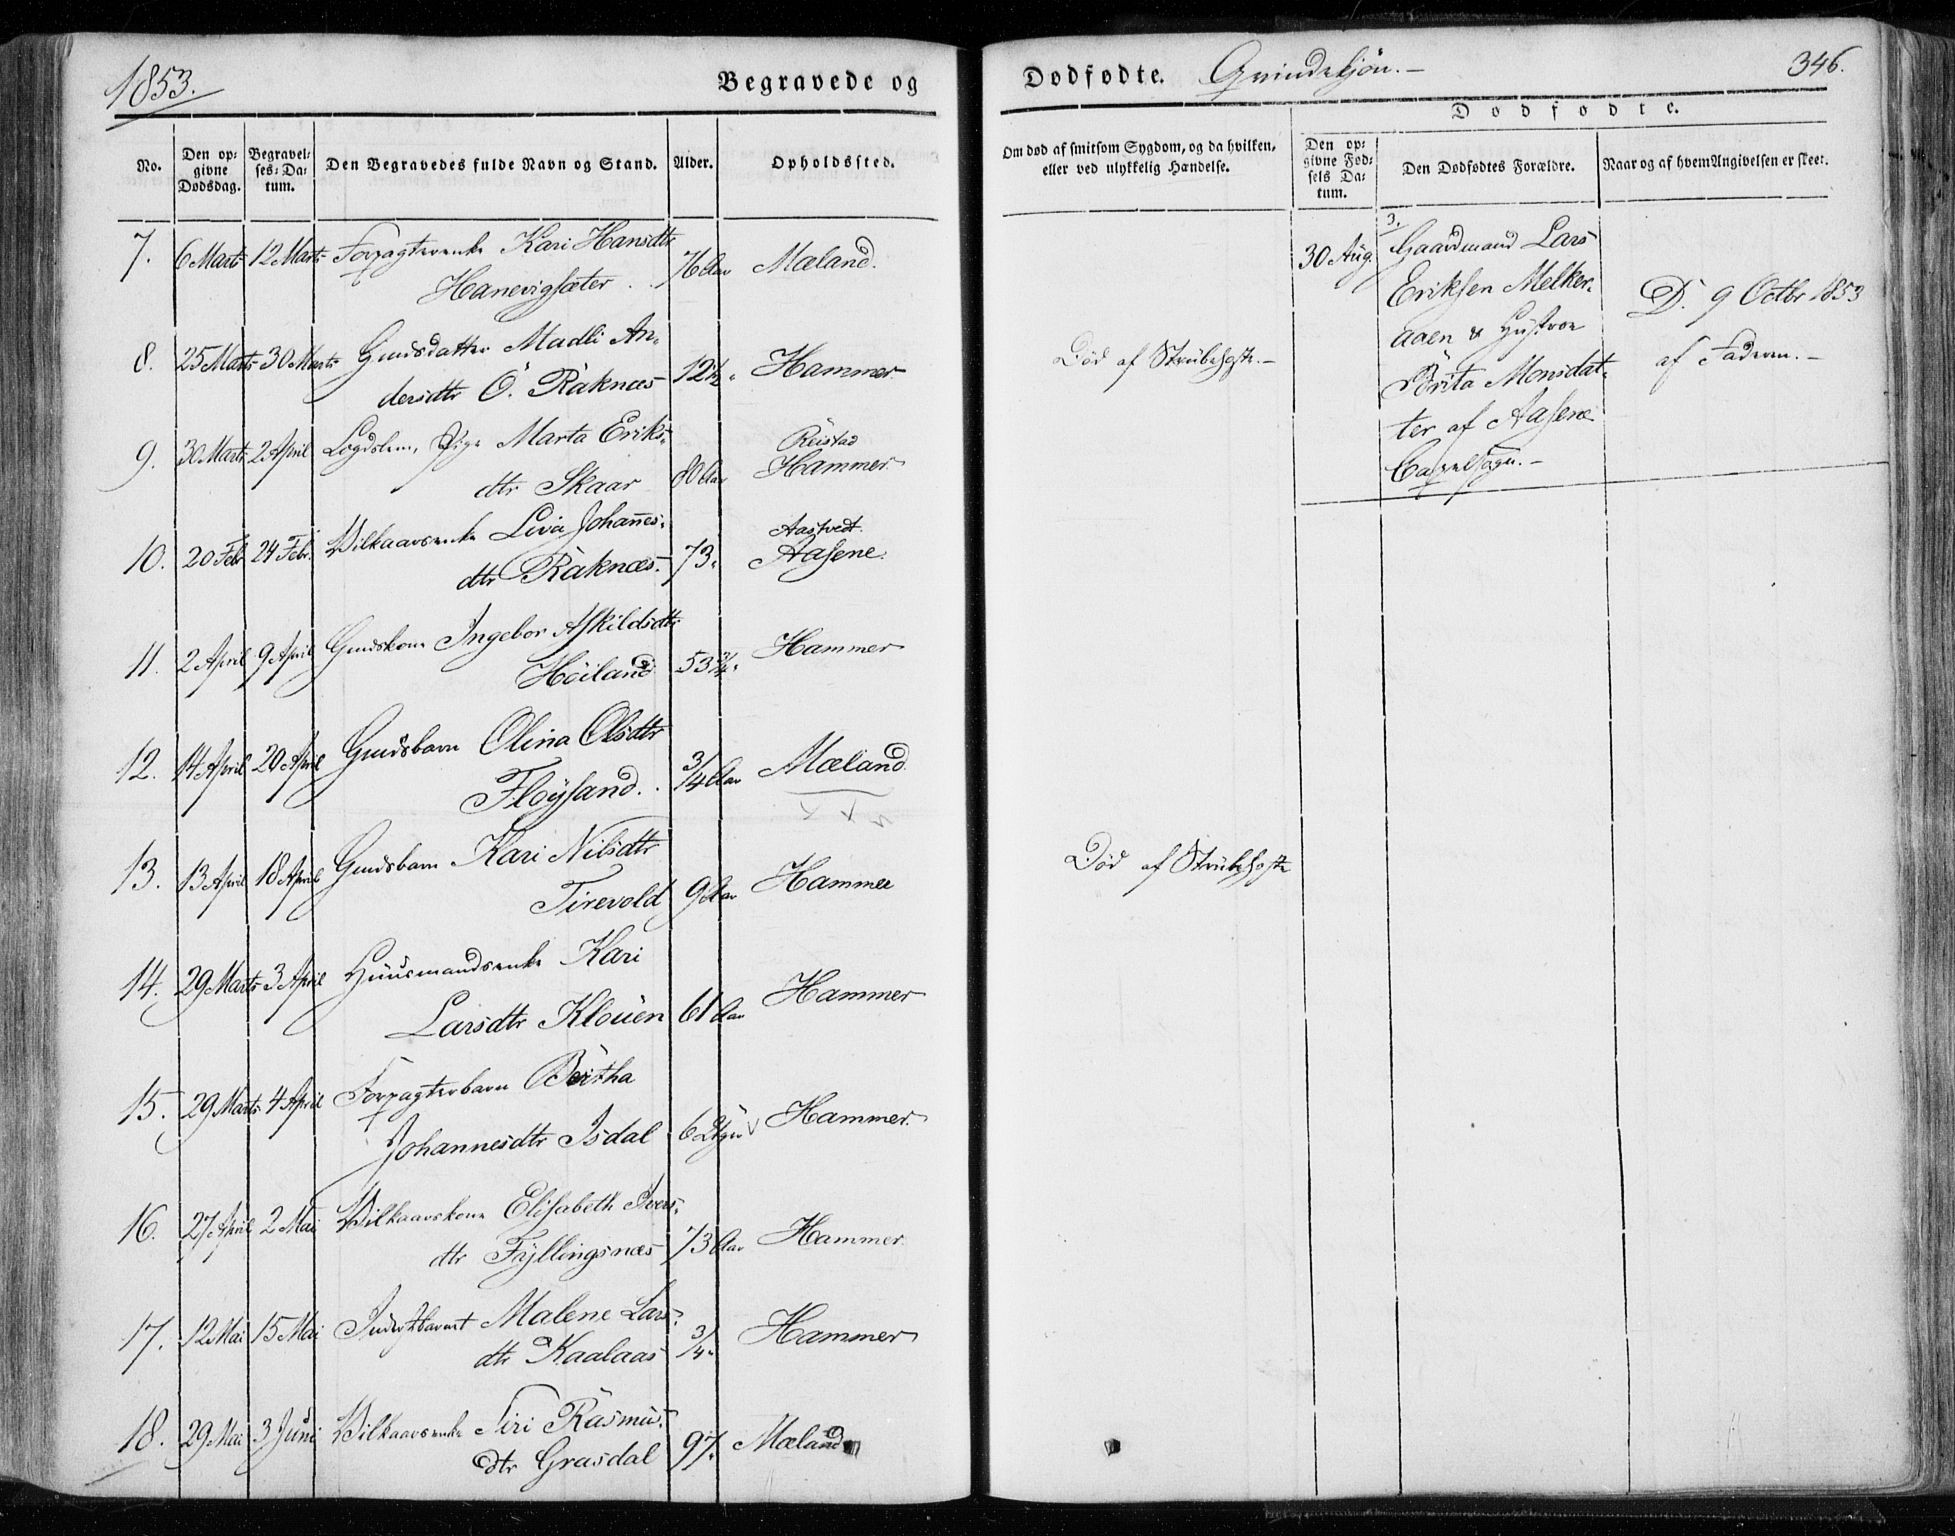 1853.
Begravede og
Dødfødte. Qvindekjøn.-
346.
No.
Den opgivne Dødsdag.
Begravelses-Datum.
Den Begravedes fulde Navn og Stand.
Alder.
Opholdssted.
Om død af smitsom Sygdom, og da hvilken, eller ved ulykkelig Hændelse.
Dødfødte.
Den opgivne Fødsels Datum.
Den Dødfødtes Forældre.
Naar og af hvem Angivelsen er skeet.
7. 6 Marts 12 Marts Forpagterenke Kari Hansdtr
Hanevigsæter . . 76 Aar Mæland.
8. 25 Marts 30 Marts Gmdsdatter Madli An-
dersdtr Ö. Raknæs 12½ " Hammer
Död af Strubehoste.-
9. 30 Marts 2 April Logdslem, Pige Marta Eriks-
dtr Skaar 80 Aar Reistad
Hammer
10. 20 Febr 24 Febr. Vilkaarsenke Liva Johannes-
dtr Raknæs. 73 " Aastvedt.
Aasene.
11. 2 April 9 April Gmdskone Ingebor Askildsdtr
Höiland 53¾ " Hammer
12. 14 April 20 April Gmdsbarn Olina Olsdtr
Flöysand. . 3/4 Aar Mæland
13. 13 April 18 April Gmdsbarn Kari Nilsdtr
Tirevold 9 Aar Hammer
Död af Strubehoste
14. 29 Marts 3 April Huusmandsenke Kari
Larsdtr Klouen 61 Aar Hammer
15. 29 Marts 4 April Forpagterbarn Bertha
Johannesdtr Isdal 6 Hammer
16. 27 April 2 Mai Vilkaarskone Elisabeth Ivers-
dtr Fyllingsnæs 73 Aar Hammer
17. 12 Mai 15 Mai Malene Lars-
dtr Kaalaas 3/4 " Hammer
18. 29 Mai 3 Juni Vilkaarsenke Siri Rasmus-
dtr Grasdal 97. Mæland
3.
30 Aug. Gaardmand Lars
Eriksen Melker-
aaen & Hustroe
Brita Monsdat-
ter af Aasene
Capelsogn.-
D. 9 Octbr 1853
af Faderen.-